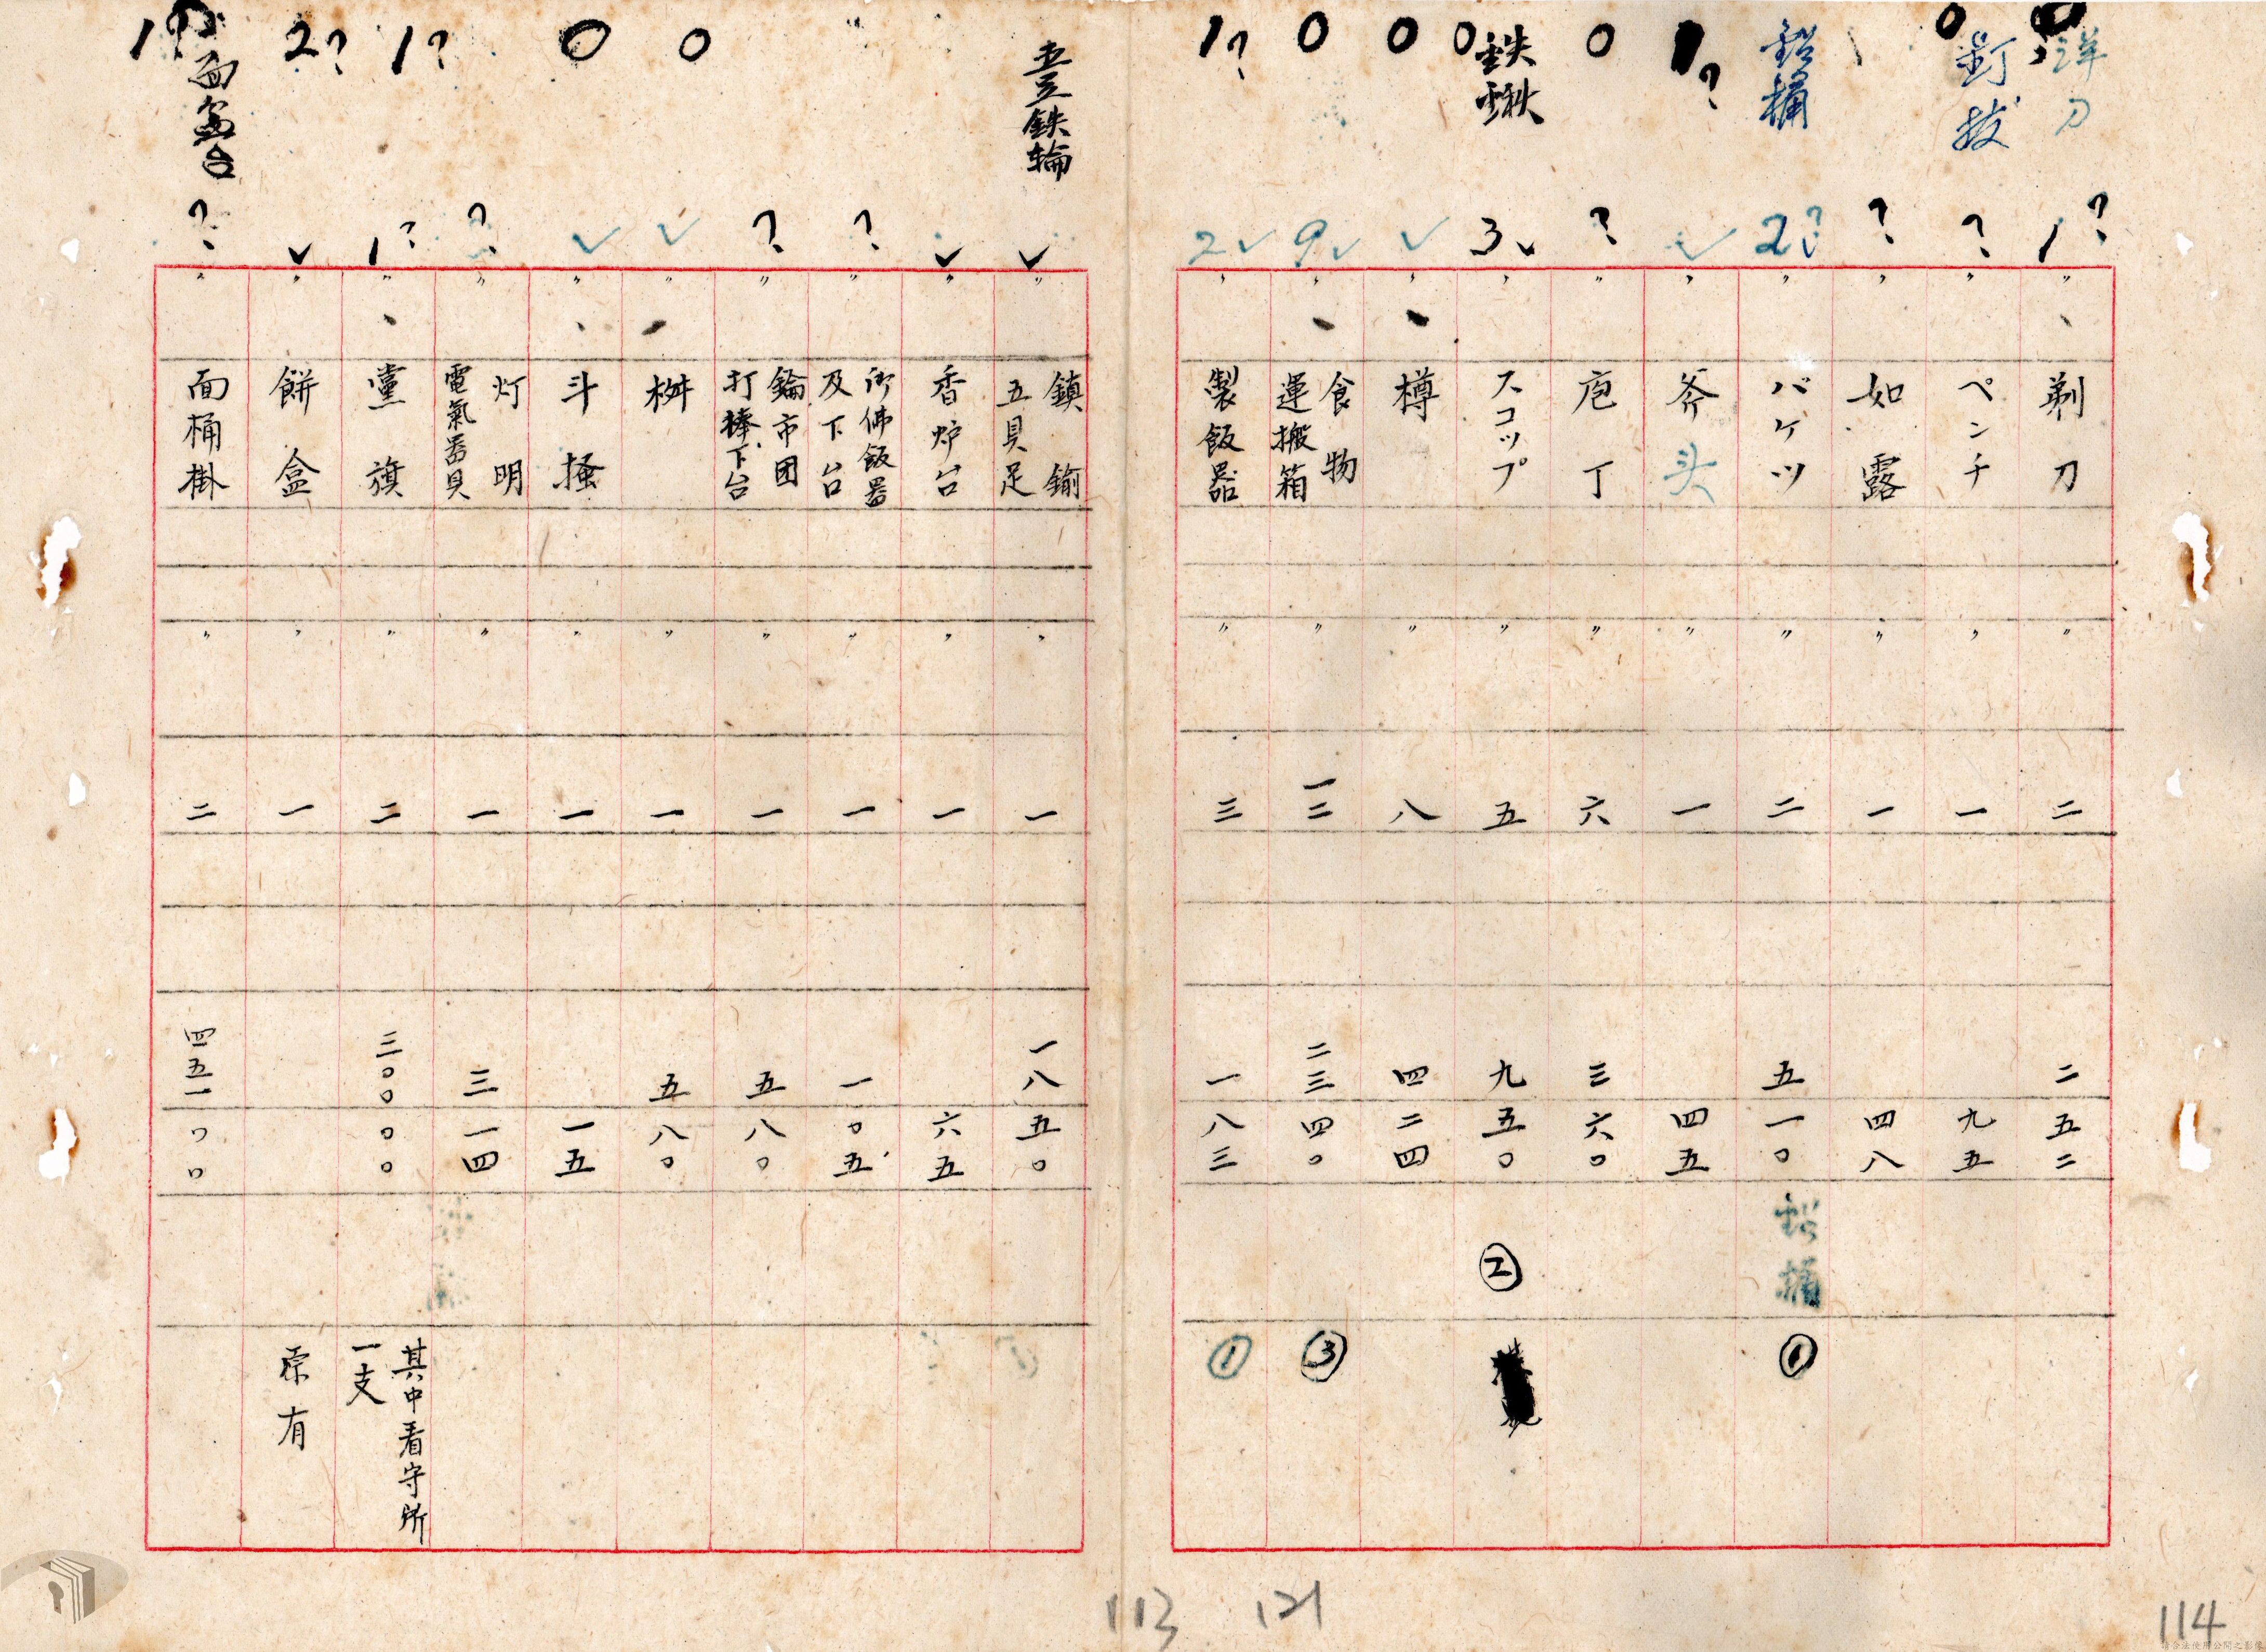 洋刀
1?
〃
剃刀
〃
二
二五二
0
釘抜
?
〃
ペンチ
〃
一
九五
?
〃
如露
〃
一
四八
鉛桶
2?
〃
バケツ
〃
二
五一〇
鉛桶
①
1?
〃
斧头
〃
一
四五
0
?
〃
庖丁
〃
六
三六〇
0
鉄鍬
3
〃
スコップ
〃
五
九五〇
②
0
〃
樽
〃
八
四二四
0
9
〃
食物
運搬箱
〃
一二
二三四〇
③
1?
2
〃
製飯器
〃
三
一八三
壹鉄輪
〃
鎮鍮
五具足
〃
一
一八五〇
〃
香炉台
〃
一
六五
?
〃
御佛飯器
及下台
〃
一
一〇五
?
〃
鑰市团
打棒下台
〃
一
五八〇
0
〃
桝
〃
一
五八〇
0
〃
斗搔
〃
一
一五
?
〃
灯明
電氣器具
〃
一
三一四
1?
1?
〃
黨旗
〃
二
三〇〇〇〇
其中看守所
一支
2?
〃
餅盒
〃
一
原有
1?
面盆台
?
〃
面桶掛
〃
二
四五一〇〇
113
121
114